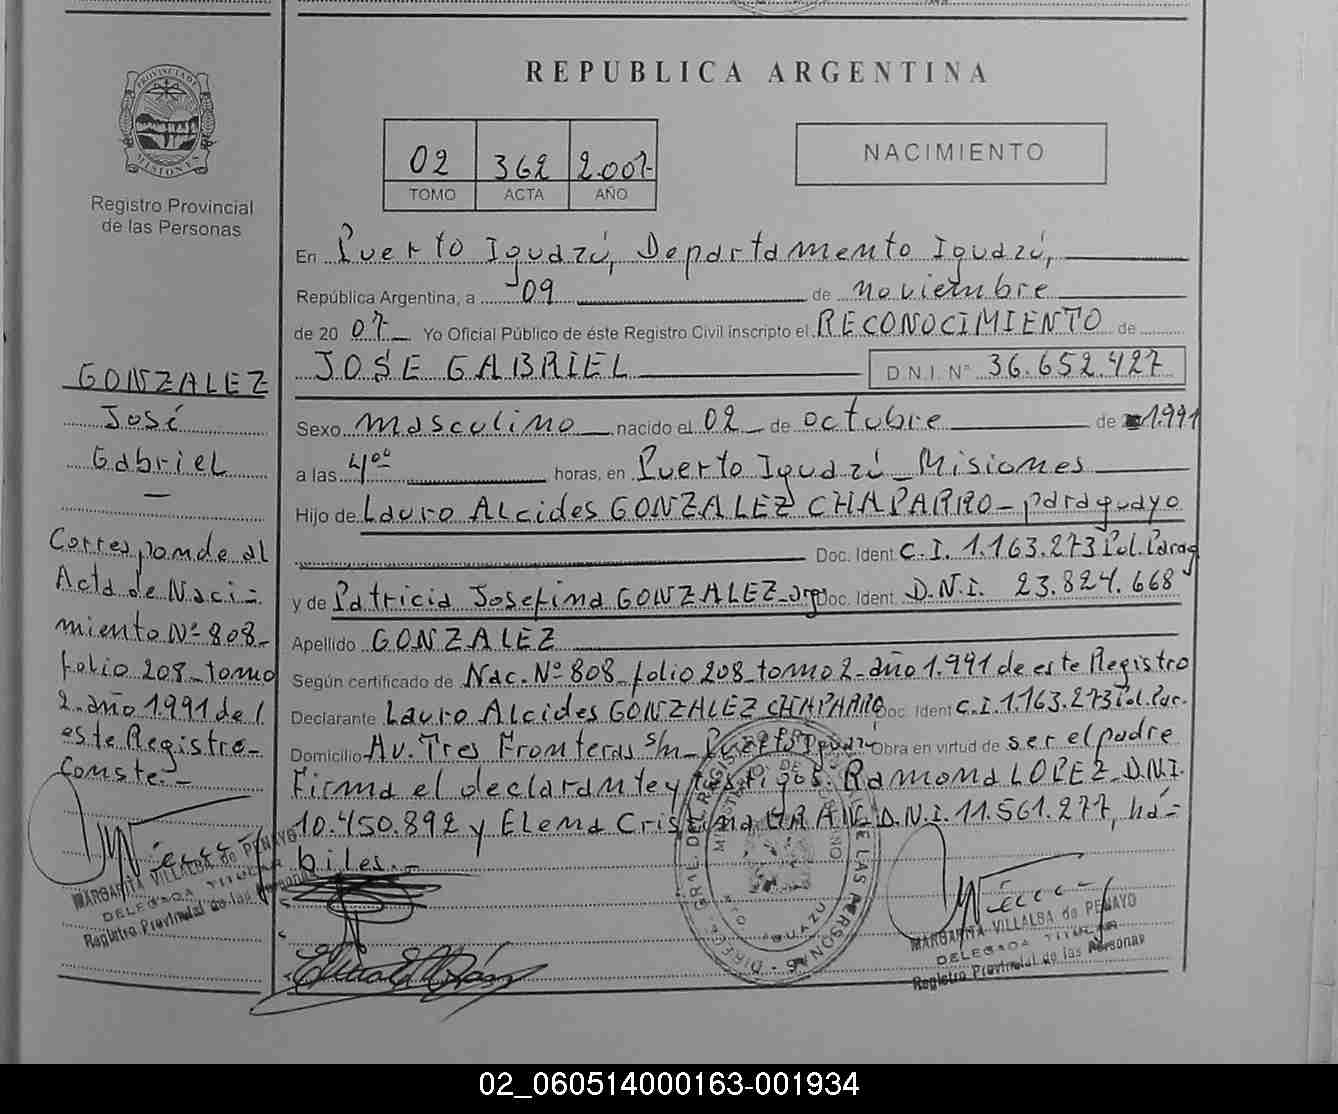 REPUBLICA ARGENTINA
PROVINCIA DE
MISIONES
Registro Provincial
de las Personas
02 362 2.007-
TOMO ACTA AÑO
NACIMIENTO
En Puerto Iguazú, Departamento Iguazú,
República Argentina, a 09 de noviembre
de 20 07 Yo Oficial Público de éste Registro Civil inscripto el RECONOCIMIENTO de
JOSE GABRIEL D.N.I. N° 36.652.427
Sexo masculino nacido el 02 de octubre de 1.991
a las 4,00 horas, en Puerto Iguazú - Misiones
Hijo de Lauro Alcides GONZALEZ CHAPARRO - paraguayo
Doc. Ident C.I. 1.163.273 Pol. Parag
y de Patricia Josefina GONZALEZ - arg Doc. Ident. D.N.I. 23.824.668
Apellido GONZALEZ
Según certificado de Nac. Nº 808 - folio 208 - tomo 2 - año 1.991 de este Registro
Declarante Lauro Alcides GONZALEZ CHAPARRO Doc. Ident C.I. 1.163.273 Pol. Par.
Domicilio Av. Tres Fronteras s/n - Puerto Iguazú Obra en virtud de ser el padre
Firma el declarante y testigos: Ramona LOPEZ - D.N.I.
10.450.892 y Elena Cristina D.N.I. 11.561.277, há-
biles.-
GONZALEZ
José
Gabriel
—
Corresponde al
Acta de Naci-
miento Nº 808 -
folio 208 - tomo
2 - año 1.991 de
este Registro -
Conste.-
MARGARITA VILLALBA de PENAYO
DELEGADA TITULAR
Registro Provincial de las Personas
MARGARITA VILLALBA de PENAYO
DELEGADA TITULAR
Registro Provincial de las Personas
02_060514000163-001934